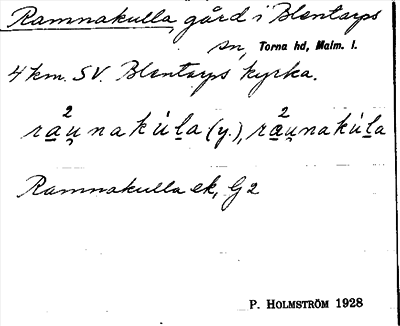 Ramnakulla, gård i Blentarps
sn, Torna hd, Malm. l.
4 km. SV. Blentarps kyrka.
ra̲²u̯nakúl̲a (y.), ræ̲²u̯nakúl̲a
Ramnakulla ek, G2
P. HOLMSTRÖM 1928